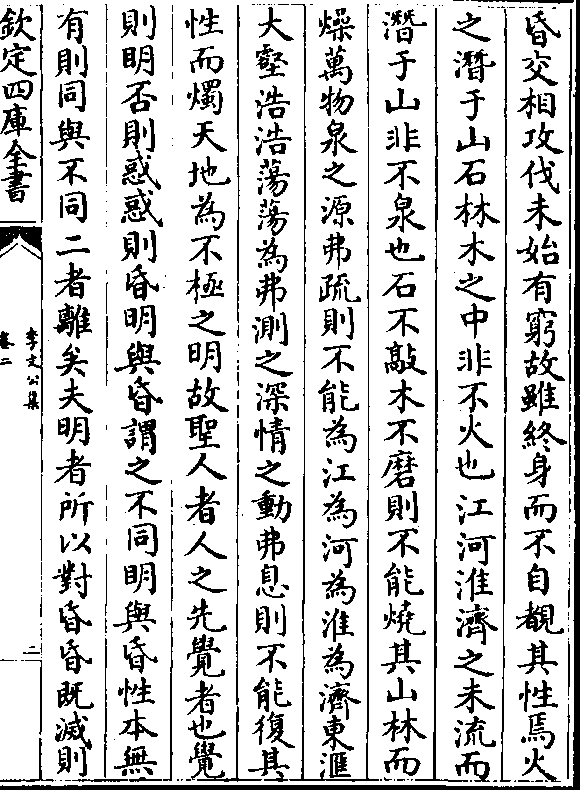 昏交相攻伐未始有窮故雖終身而不自覩其性焉火
之潛于山石林木之中非不火也江河淮濟之未流而
潛于山非不泉也石不敲木不磨則不能燒其山林而
燥萬物泉之源弗疏則不能為江為河為淮為濟東滙
大壑浩浩蕩蕩為弗測之深情之動弗息則不能復其
性而燭天地為不極之明故聖人者人之先覺者也覺
則明否則惑惑則昏明與昏謂之不同明與昏性本無
有則同與不同二者離矣夫明者所以對昏昏既滅則
欽定四庫全書
李文公集
卷二
二